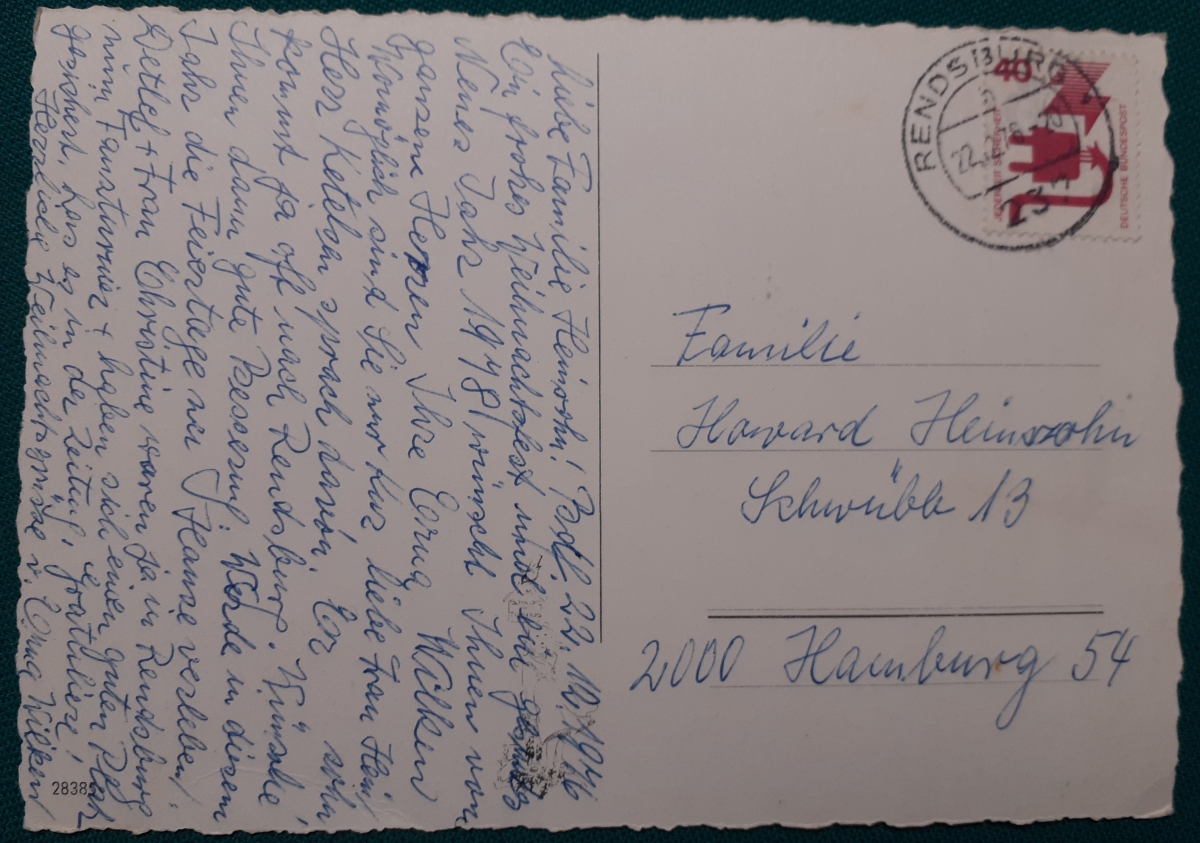 Liebe Familie Heinsohn! Rdsbg. 22.12.1976
Ein frohes Weihnachtsfest und ein gesundes
Neues Jahr 1978/ wünscht Ihnen von
ganzem Herzen Ihre Erna Wilken
Womöglich sind Sie nur kur liebe Frau Hein/
Herr Ketelsen sprach davon. Er sohn/
kommt ja oft nach Rendsburg. Wünsche
Ihnen dann gute Besserung. Werde in diesem
Jahr die Feiertage zu Hause verleben/
Detlef + Frau Christine waren ja in Rendsburg
zum Tanzturnier + haben sich einen guten Platz
gesichert, las es in der Zeitung, gratuliere!
Herzliche Weihnachtsgrüsse v. Erna Wilken
28385
RENDSBURG
22.12.76-20
40
JEDERZEIT SICHERHEIT
DEUTSCHE BUNDESPOST
Familie
Howard Heinsohn
Schwübb 13
2000 Hamburg 54